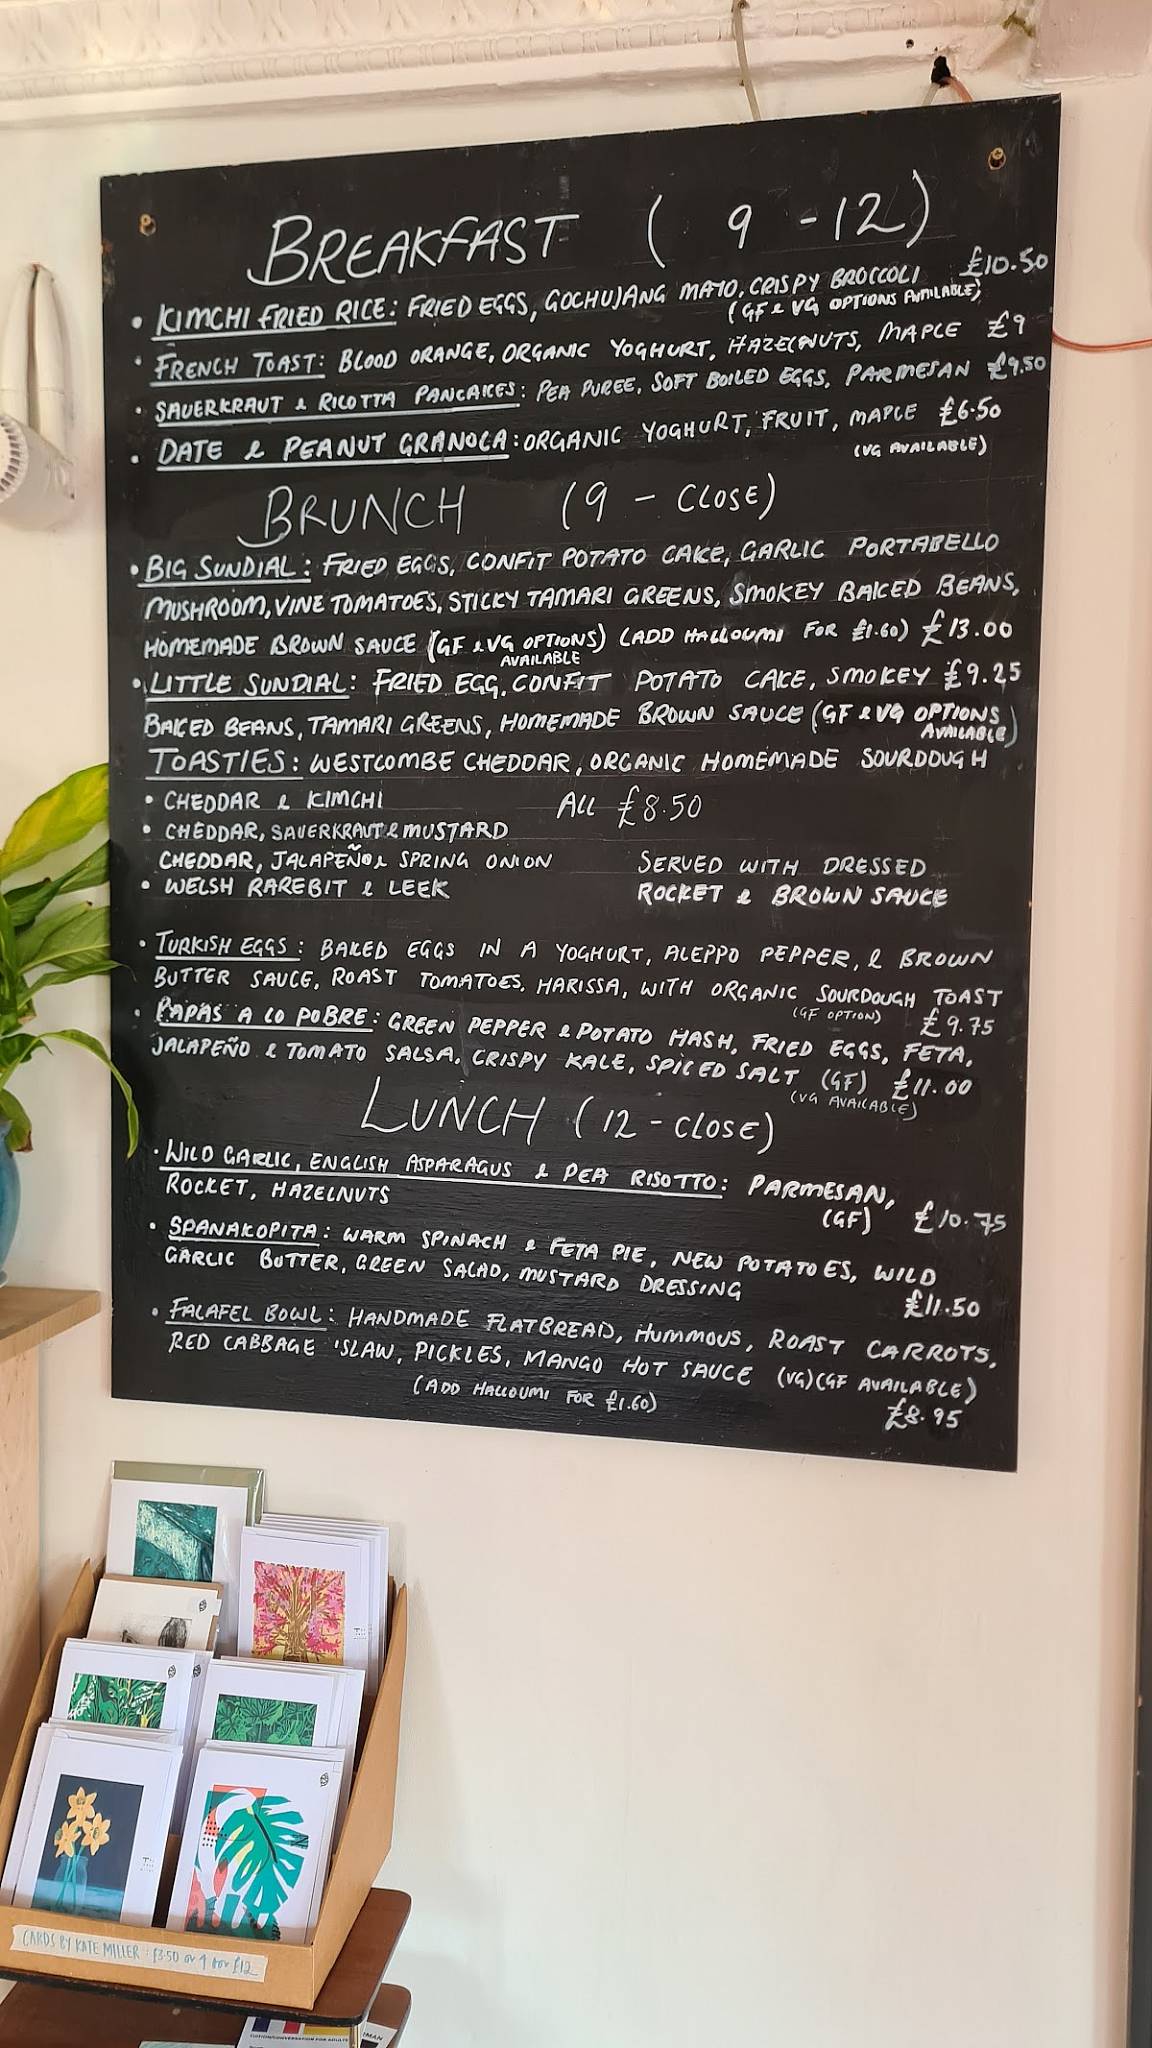 BREAKFAST ( 9 - 12)
• KIMCHI FRIED RICE: FRIED EGGS, GOCHUJANG MAYO, CRISPY BROCCOLI £10.50
(GF & VG OPTIONS AVAILABLE)
• FRENCH TOAST: BLOOD ORANGE, ORGANIC YOGHURT, HAZELNUTS, MAPLE £9
• SAUERKRAUT & RICOTTA PANCAKES: PEA PUREE, SOFT BOILED EGGS, PARMESAN £9.50
• DATE & PEANUT GRANOLA: ORGANIC YOGHURT, FRUIT, MAPLE £6.50
(VG AVAILABLE)
BRUNCH (9 - CLOSE)
• BIG SUNDIAL: FRIED EGGS, CONFIT POTATO CAKE, GARLIC PORTABELLO
MUSHROOM, VINE TOMATOES, STICKY TAMARI GREENS, SMOKEY BAKED BEANS,
HOMEMADE BROWN SAUCE (GF & VG OPTIONS) (ADD HALLOUMI FOR £1.60) £13.00
AVAILABLE
• LITTLE SUNDIAL: FRIED EGG, CONFIT POTATO CAKE, SMOKEY £9.25
BAKED BEANS, TAMARI GREENS, HOMEMADE BROWN SAUCE (GF & VG OPTIONS
AVAILABLE)
TOASTIES: WESTCOMBE CHEDDAR, ORGANIC HOMEMADE SOURDOUGH
• CHEDDAR & KIMCHI ALL £8.50
• CHEDDAR, SAUERKRAUT & MUSTARD
CHEDDAR, JALAPEÑO & SPRING ONION SERVED WITH DRESSED
• WELSH RAREBIT & LEEK ROCKET & BROWN SAUCE
• TURKISH EGGS: BAKED EGGS IN A YOGHURT, ALEPPO PEPPER, & BROWN
BUTTER SAUCE, ROAST TOMATOES, HARISSA, WITH ORGANIC SOURDOUGH TOAST
(GF OPTION) £9.75
• PAPAS A LO POBRE: GREEN PEPPER & POTATO HASH, FRIED EGGS, FETA,
JALAPEÑO & TOMATO SALSA, CRISPY KALE, SPICED SALT (GF) £11.00
(VG AVAILABLE)
LUNCH (12 - CLOSE)
• WILD GARLIC, ENGLISH ASPARAGUS & PEA RISOTTO: PARMESAN,
ROCKET, HAZELNUTS (GF) £10.75
• SPANAKOPITA: WARM SPINACH & FETA PIE, NEW POTATOES, WILD
GARLIC BUTTER, GREEN SALAD, MUSTARD DRESSING £11.50
• FALAFEL BOWL: HANDMADE FLATBREAD, HUMMOUS, ROAST CARROTS,
RED CABBAGE 'SLAW, PICKLES, MANGO HOT SAUCE (VG)(GF AVAILABLE)
(ADD HALLOUMI FOR £1.60) £8.95
CARDS BY KATE MILLER: £3.50 or 4 for £12
TUITION/CONVERSATION FOR ADULTS